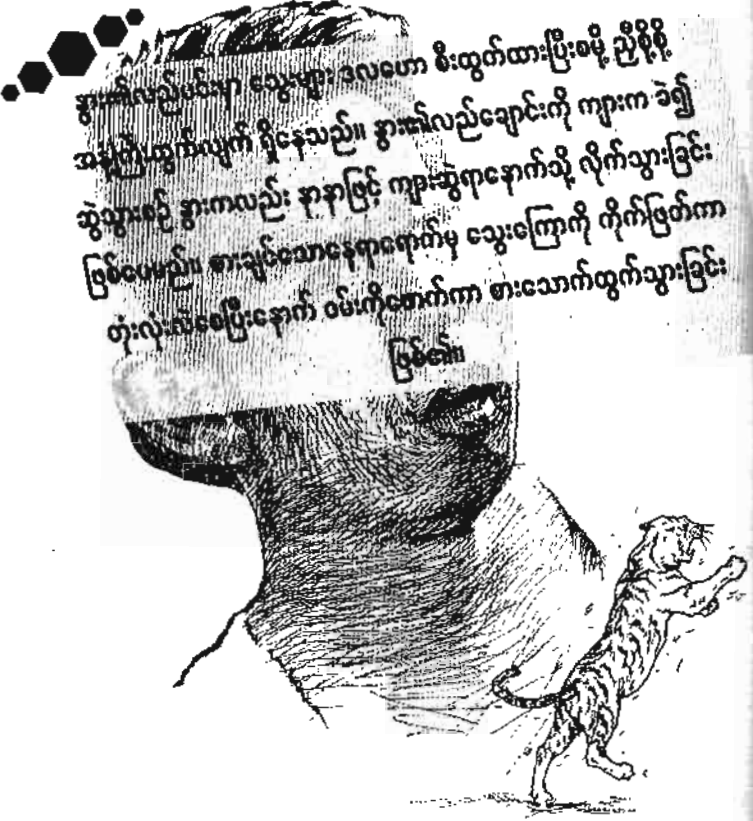 နွား၏လည်ပင်းမှာ သွေးများ ဒလဟော စီးထွက်ထားပြီးစမို့ ညှီစို့စို့
အနံ့ကြီးထွက်လျက် ရှိနေသည်။ နွား၏လည်ချောင်းကို ကျားက ခဲ၍
ဆွဲသွားစဉ် နွားကလည်း နာနာဖြင့် ကျားဆွဲရာနောက်သို့ လိုက်သွားခြင်း
ဖြစ်ပေမည်။ စားချင်သောနေရာရောက်မှ သွေးကြောကို ကိုက်ဖြတ်ကာ
တုံးလုံးလဲစေပြီးနောက် ဝမ်းကိုဖောက်ကာ စားသောက်ထွက်သွားခြင်း
ဖြစ်၏။